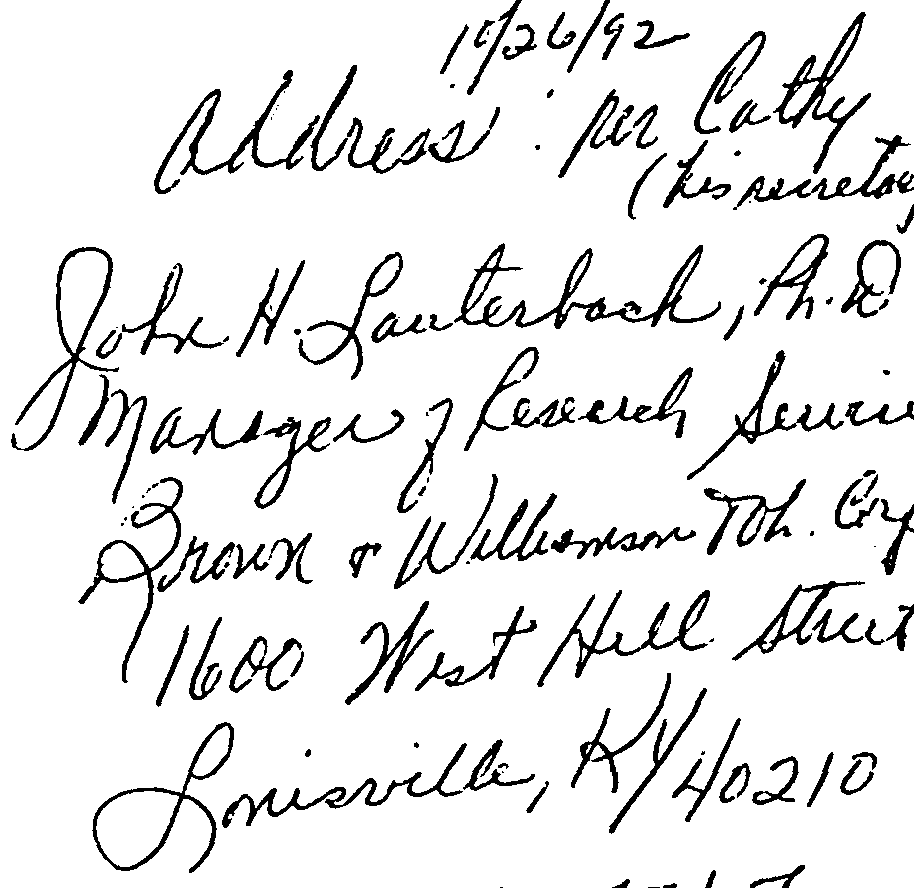 10/26/92
Address: per Cathy
(his secretary
John H. Lauterbach, Ph.D
Manager of Research Servic
Brown & Williamson Tob. Corp
1600 West Hill Street
Louisville, KY 40210